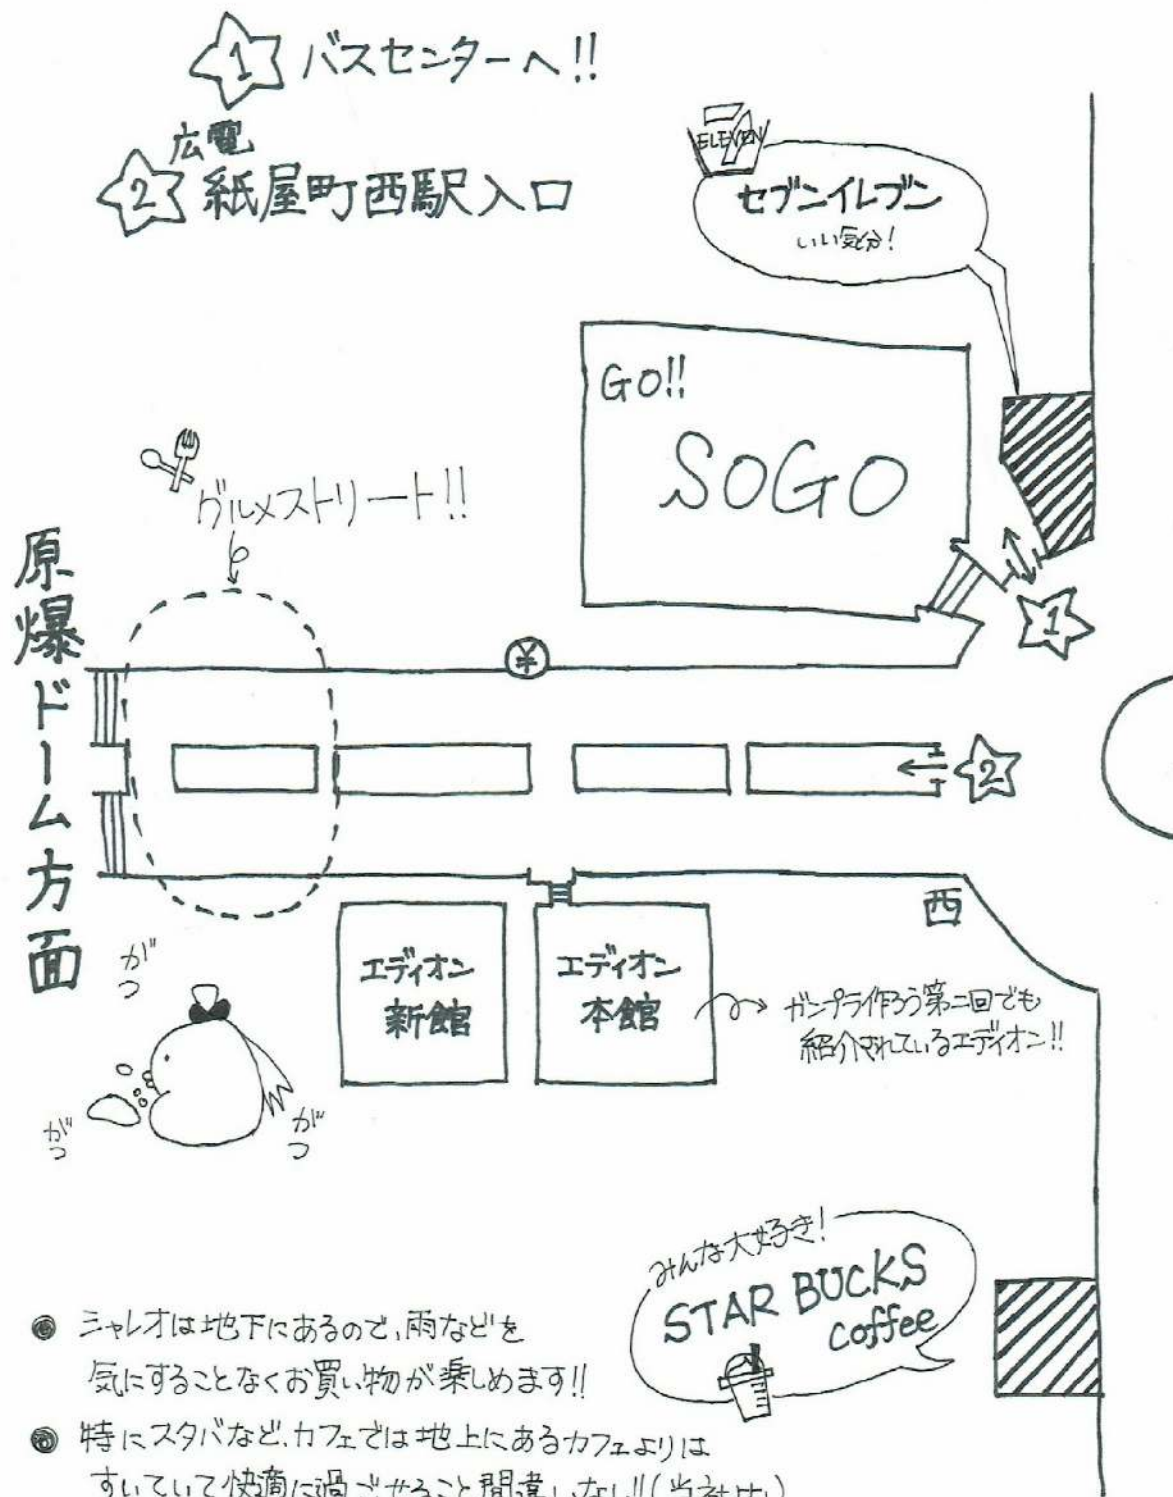 1 バスセンターへ!!
広電
2 紙屋町西駅入口
ELEVEN
セブンイレブン
いい気分!
GO!!
SOGO
グルメストリート!!
原爆ドーム方面
1
¥
2
西
エディオン
新館
エディオン
本館
ガンプラ作ろう第二回でも
紹介されているエディオン!!
がつ
がつ
がつ
みんな大好き!
STAR BUCKS
coffee
シャレオは地下にあるので、雨などを
気にすることなくお買い物が楽しめます!!
特にスタバなど、カフェでは地上にあるカフェよりは
すいていて快適に過ごせること間違いなし!!(当社比)